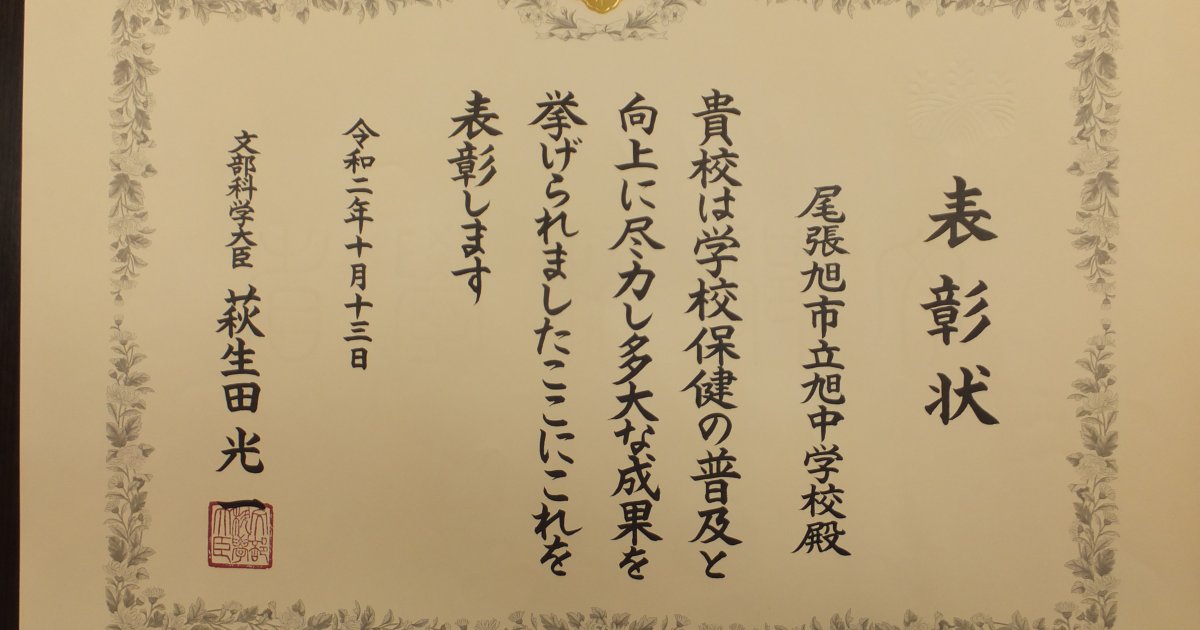 表彰状
尾張旭市立旭中学校殿
貴校は学校保健の普及と
向上に尽力し多大な成果を
挙げられましたここにこれを
表彰します
令和二年十月十三日
文部科学大臣 萩生田光一